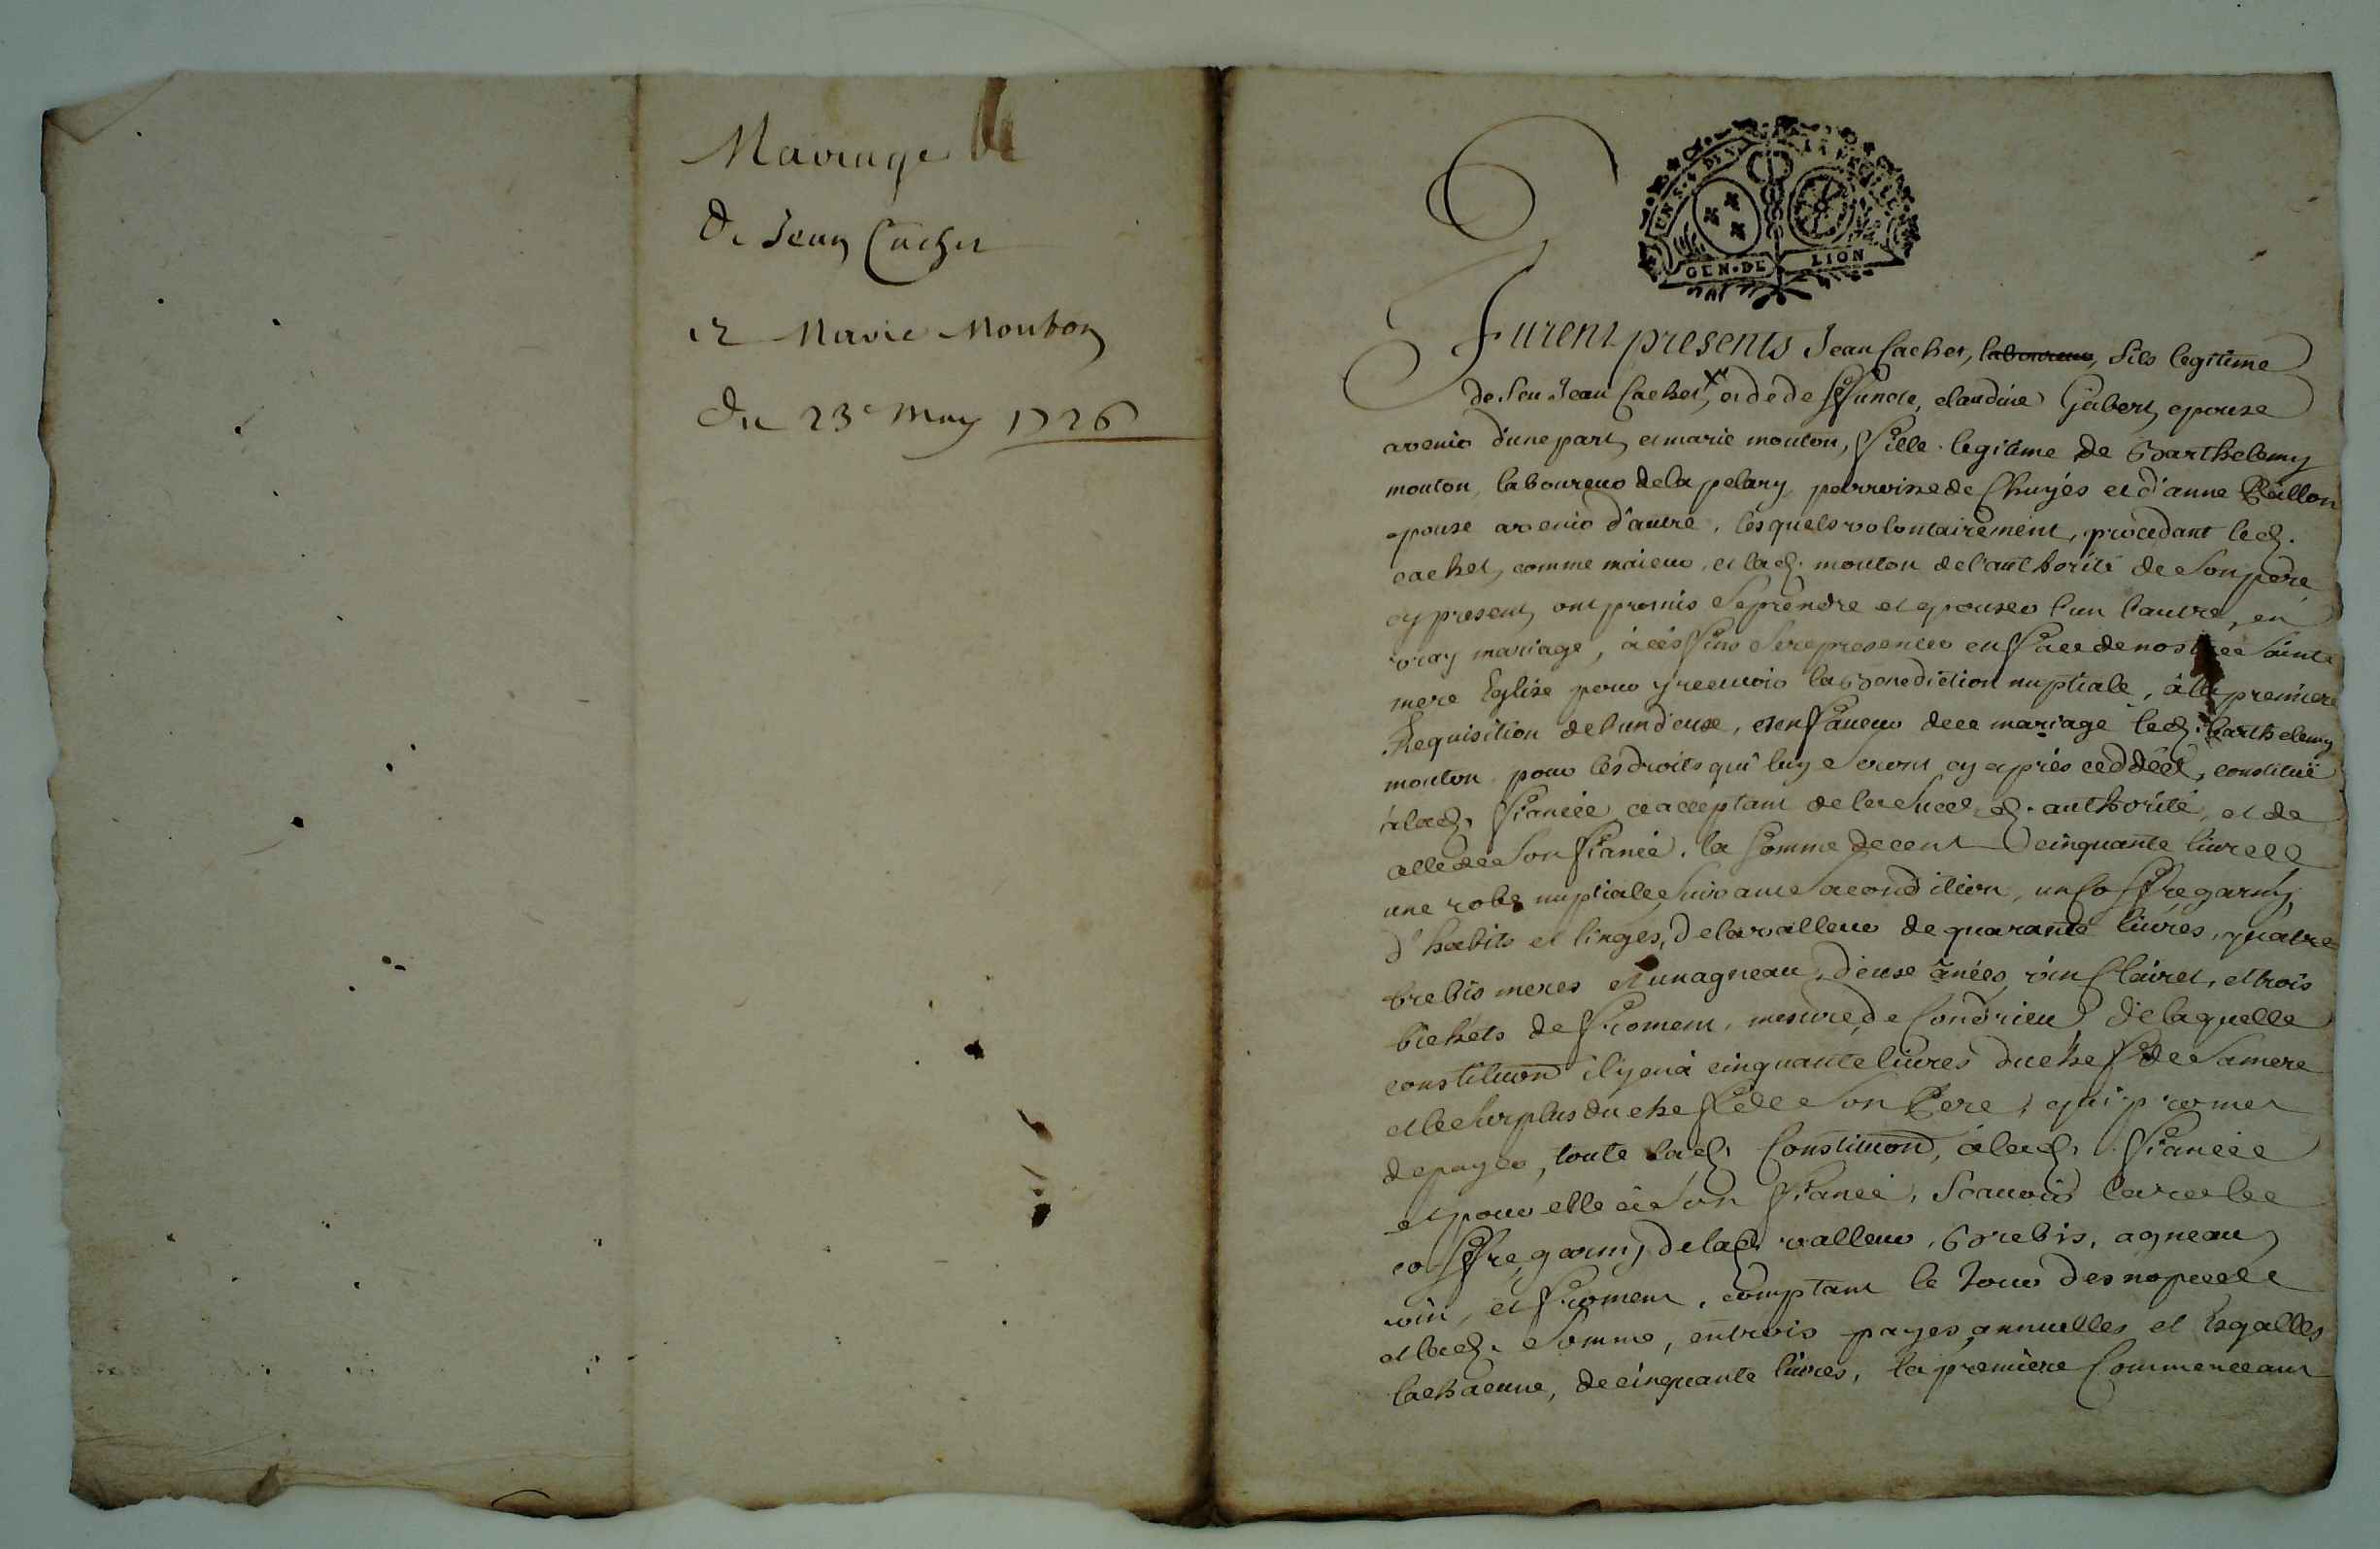 Mariage
De Jean Cachet
et Marie Mouton
Du 23e May 1726
GEN·DE LION
Furent presents Jean Cachet, laboureur, fils legitime
de feu Jean Cachet, et de deffuncte, claudine Gabert, epoux
avenir d'une part, et marie mouton, fille legitime de Barthelemy
mouton, laboureur de la pelary parroisse de Chuyés et d'anne
epouse avenir d'autre, lesquels volontairement, procedant led.
cachet, comme majeur, et lad. mouton de l'authorité de son pere
cy present, ont promis se prendre et epouser l'un l'autre, en
vray mariage, à ces fins se representer en face de nostre Sainte
mere Eglise pour y recevoir la Benediction nuptiale, à la premiere
Requisition de l'un d'eux, et en faveur de ce mariage led. Barthelemy
mouton pour les droits qui luy seront cy après ceddés, constitue
à lad. fiancée ce acceptant de la susd. authorité, et de
celle de son fiancé, la somme de cent cinquante livres
une robe nuptiale suivant sa condition, un coffre garny
d'habits et linges, de la valleur de quarante livres, quatre
brebis meres et un agneau, deux anées vin Clairet, et trois
bichets de froment, mesure de Condrieu de laquelle
constitution il y en a cinquante livres du chef de sa mere
et le surplus du chef de son Pere, qui promet
de payer, toute lad. Constitution, à lad. fiancée
et pour elle à son fiancé, scavoir la robe
coffre garny de lad. valleur, Brebis, agneau,
vin, et froment, comptant le Jour des nopces
et lad. somme, en trois payes annuelles et Esgalles
la chacune, de cinquante livres, la premiere Commenceant